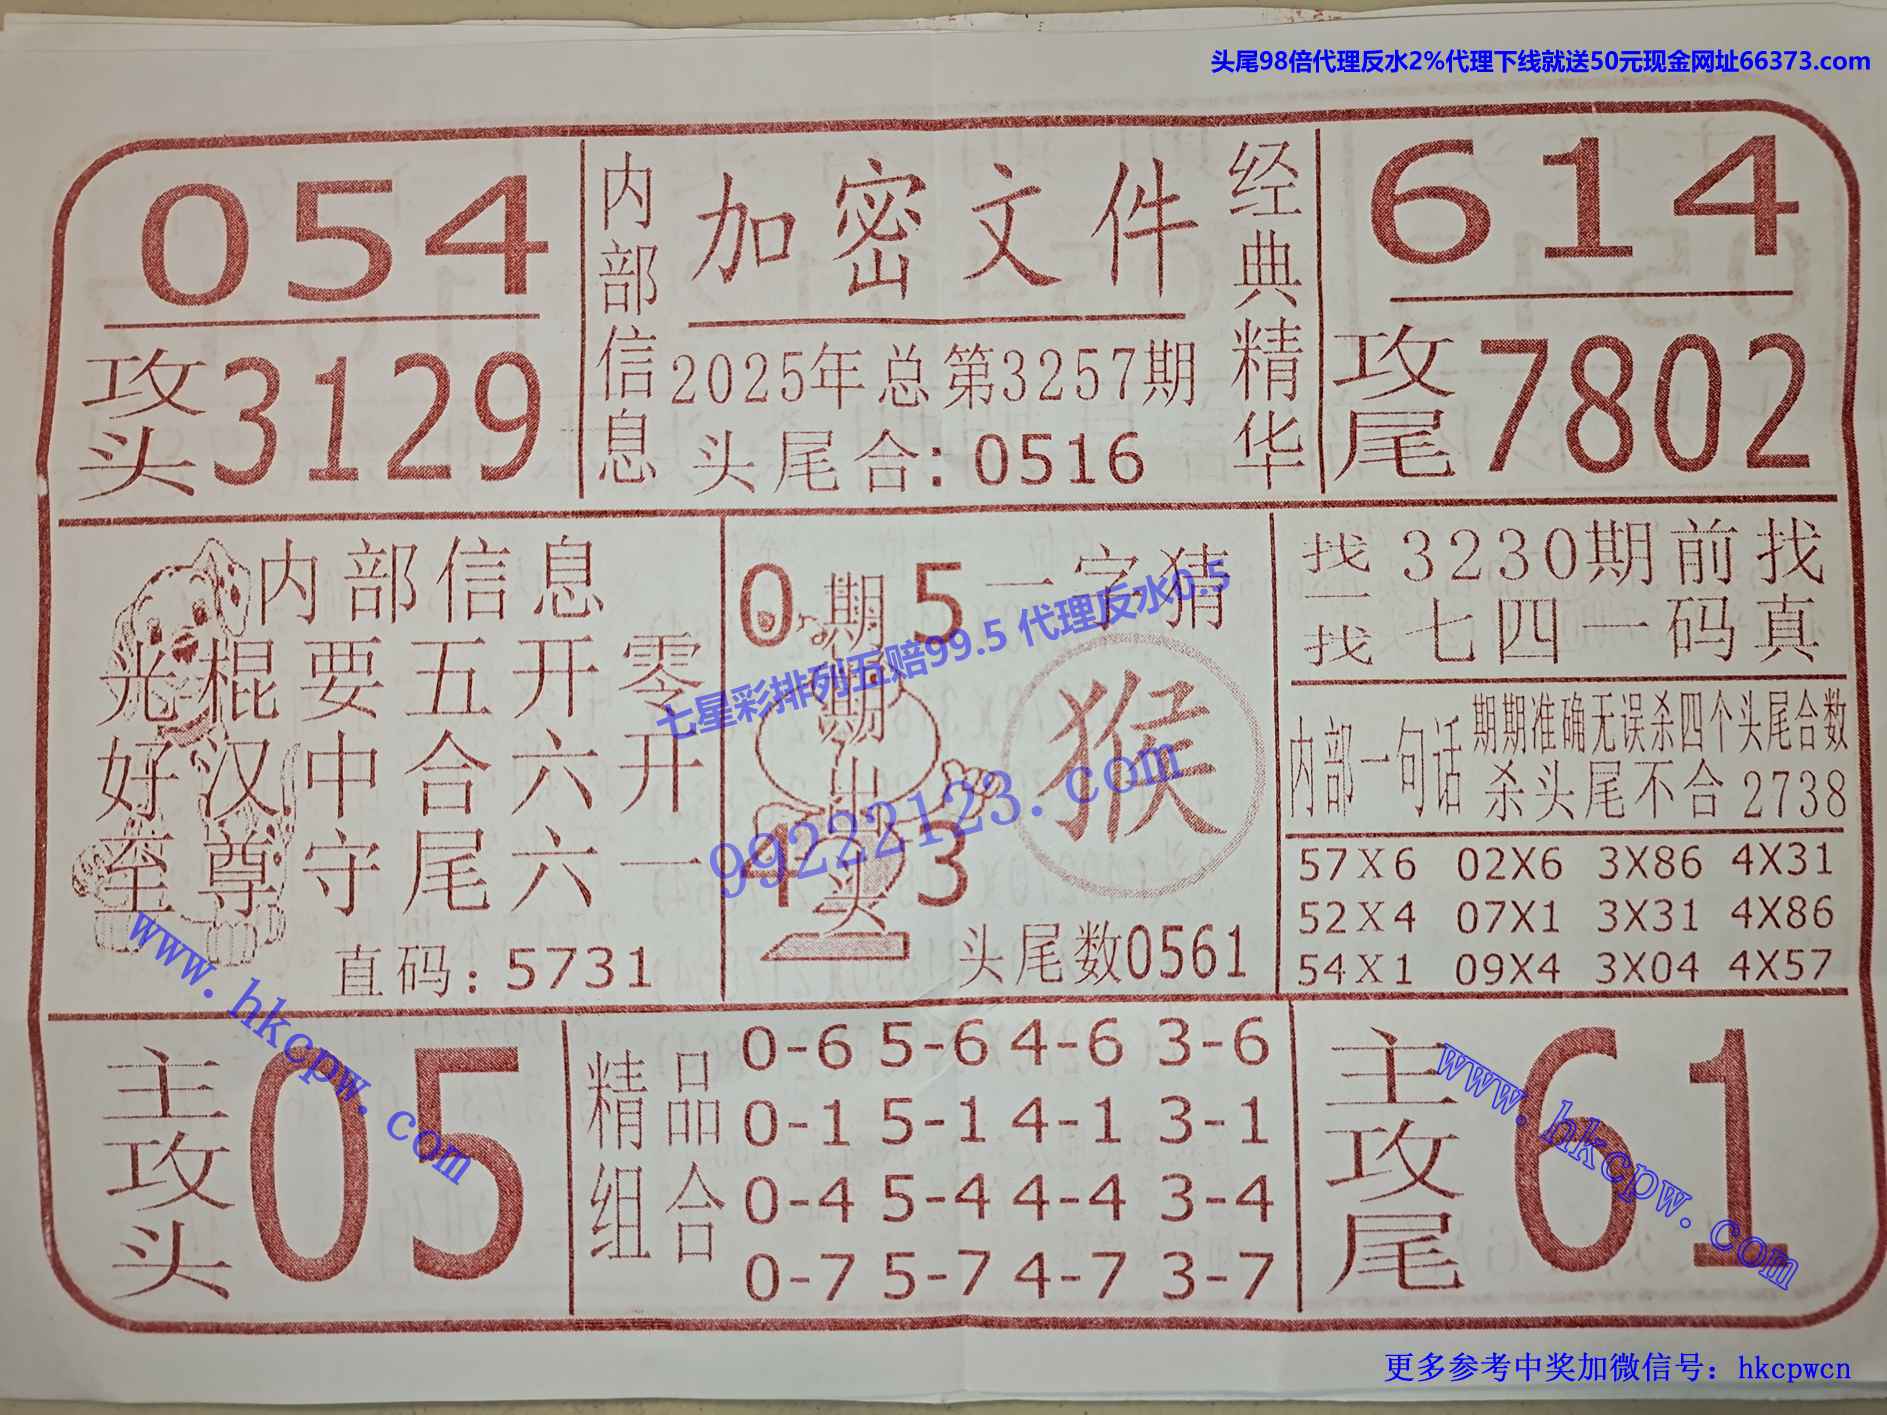 头尾98倍代理反水2%代理下线就送50元现金网址66373.com
054
攻头 3129
内部信息
加密文件
2025年总第3257期
头尾合：0516
经典精华
614
攻尾 7802
内部信息
光棍要五开零
好汉中合六开
至尊守尾六一
直码：5731
0 5
期期中头
4 3
一字猜
猴
头尾数0561
找一找
3230期前找
七四一码真
内部一句话
期期准确无误杀四个头尾合数
杀头尾不合2738
57X6 02X6 3X86 4X31
52X4 07X1 3X31 4X86
54X1 09X4 3X04 4X57
主攻头 05
精品组合
0-6 5-6 4-6 3-6
0-1 5-1 4-1 3-1
0-4 5-4 4-4 3-4
0-7 5-7 4-7 3-7
主攻尾 61
七星彩排列五赔99.5 代理反水0.5
99222123.com
www.hkcpw.com
www.hkcpw.com
更多参考中奖加微信号：hkcpwcn